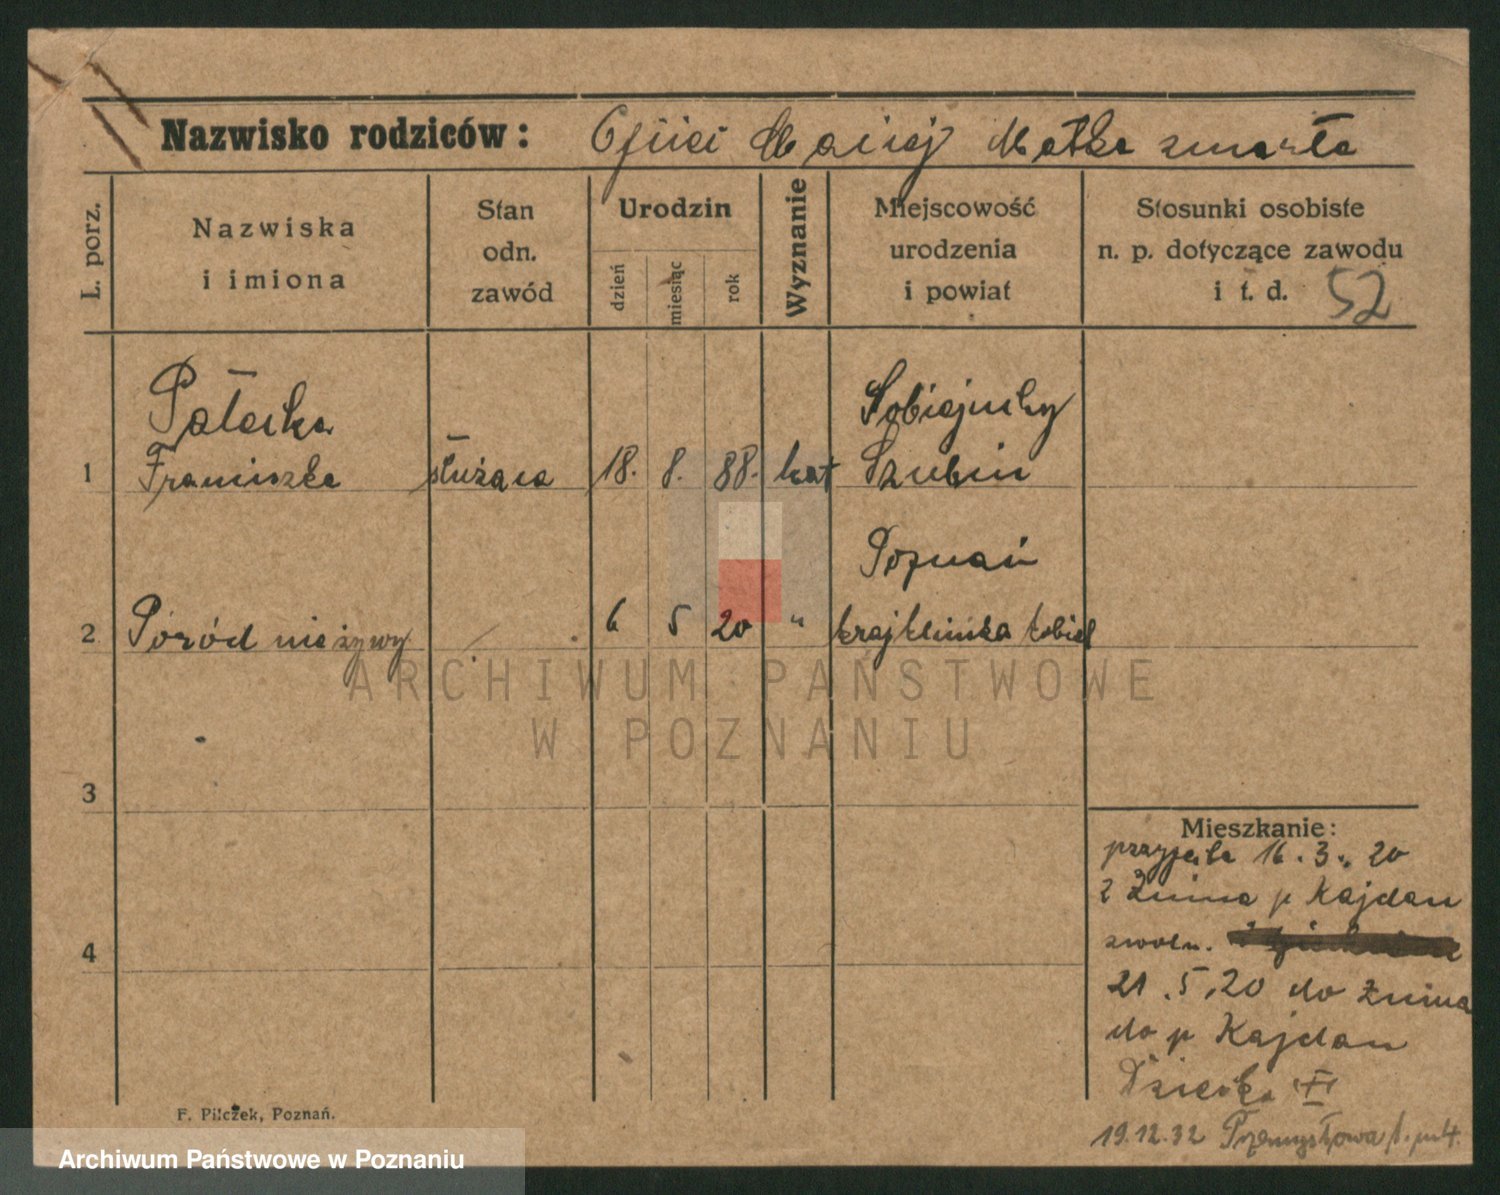 Nazwisko rodziców: Ojciec Maciej Matka zmarła
L. porz.
Nazwiska
i imiona
Stan
odn.
zawód
Urodzin
dzień
miesiąc
rok
Wyznanie
Miejscowość
urodzenia
i powiat
Stosunki osobiste
n. p. dotyczące zawodu
i t. d. 52
Pałacka
Sobiejuchy
1 Franciszka służąca 18. 8. 88. kat Szubin
Poznań
2 Poród nieżywy 6 5 20 " kraj klinika kobiet
ARCHIWUM PAŃSTWOWE
W POZNANIU
3
4
Mieszkanie:
przyjęta 16.3.20
z Żnina p Kajdan
zwoln.
21.5.20 do Żnina
do p Kajdan
Dziecko
19.12.32 Przemysłowa
F. Pilczek, Poznań.
Archiwum Państwowe w Poznaniu